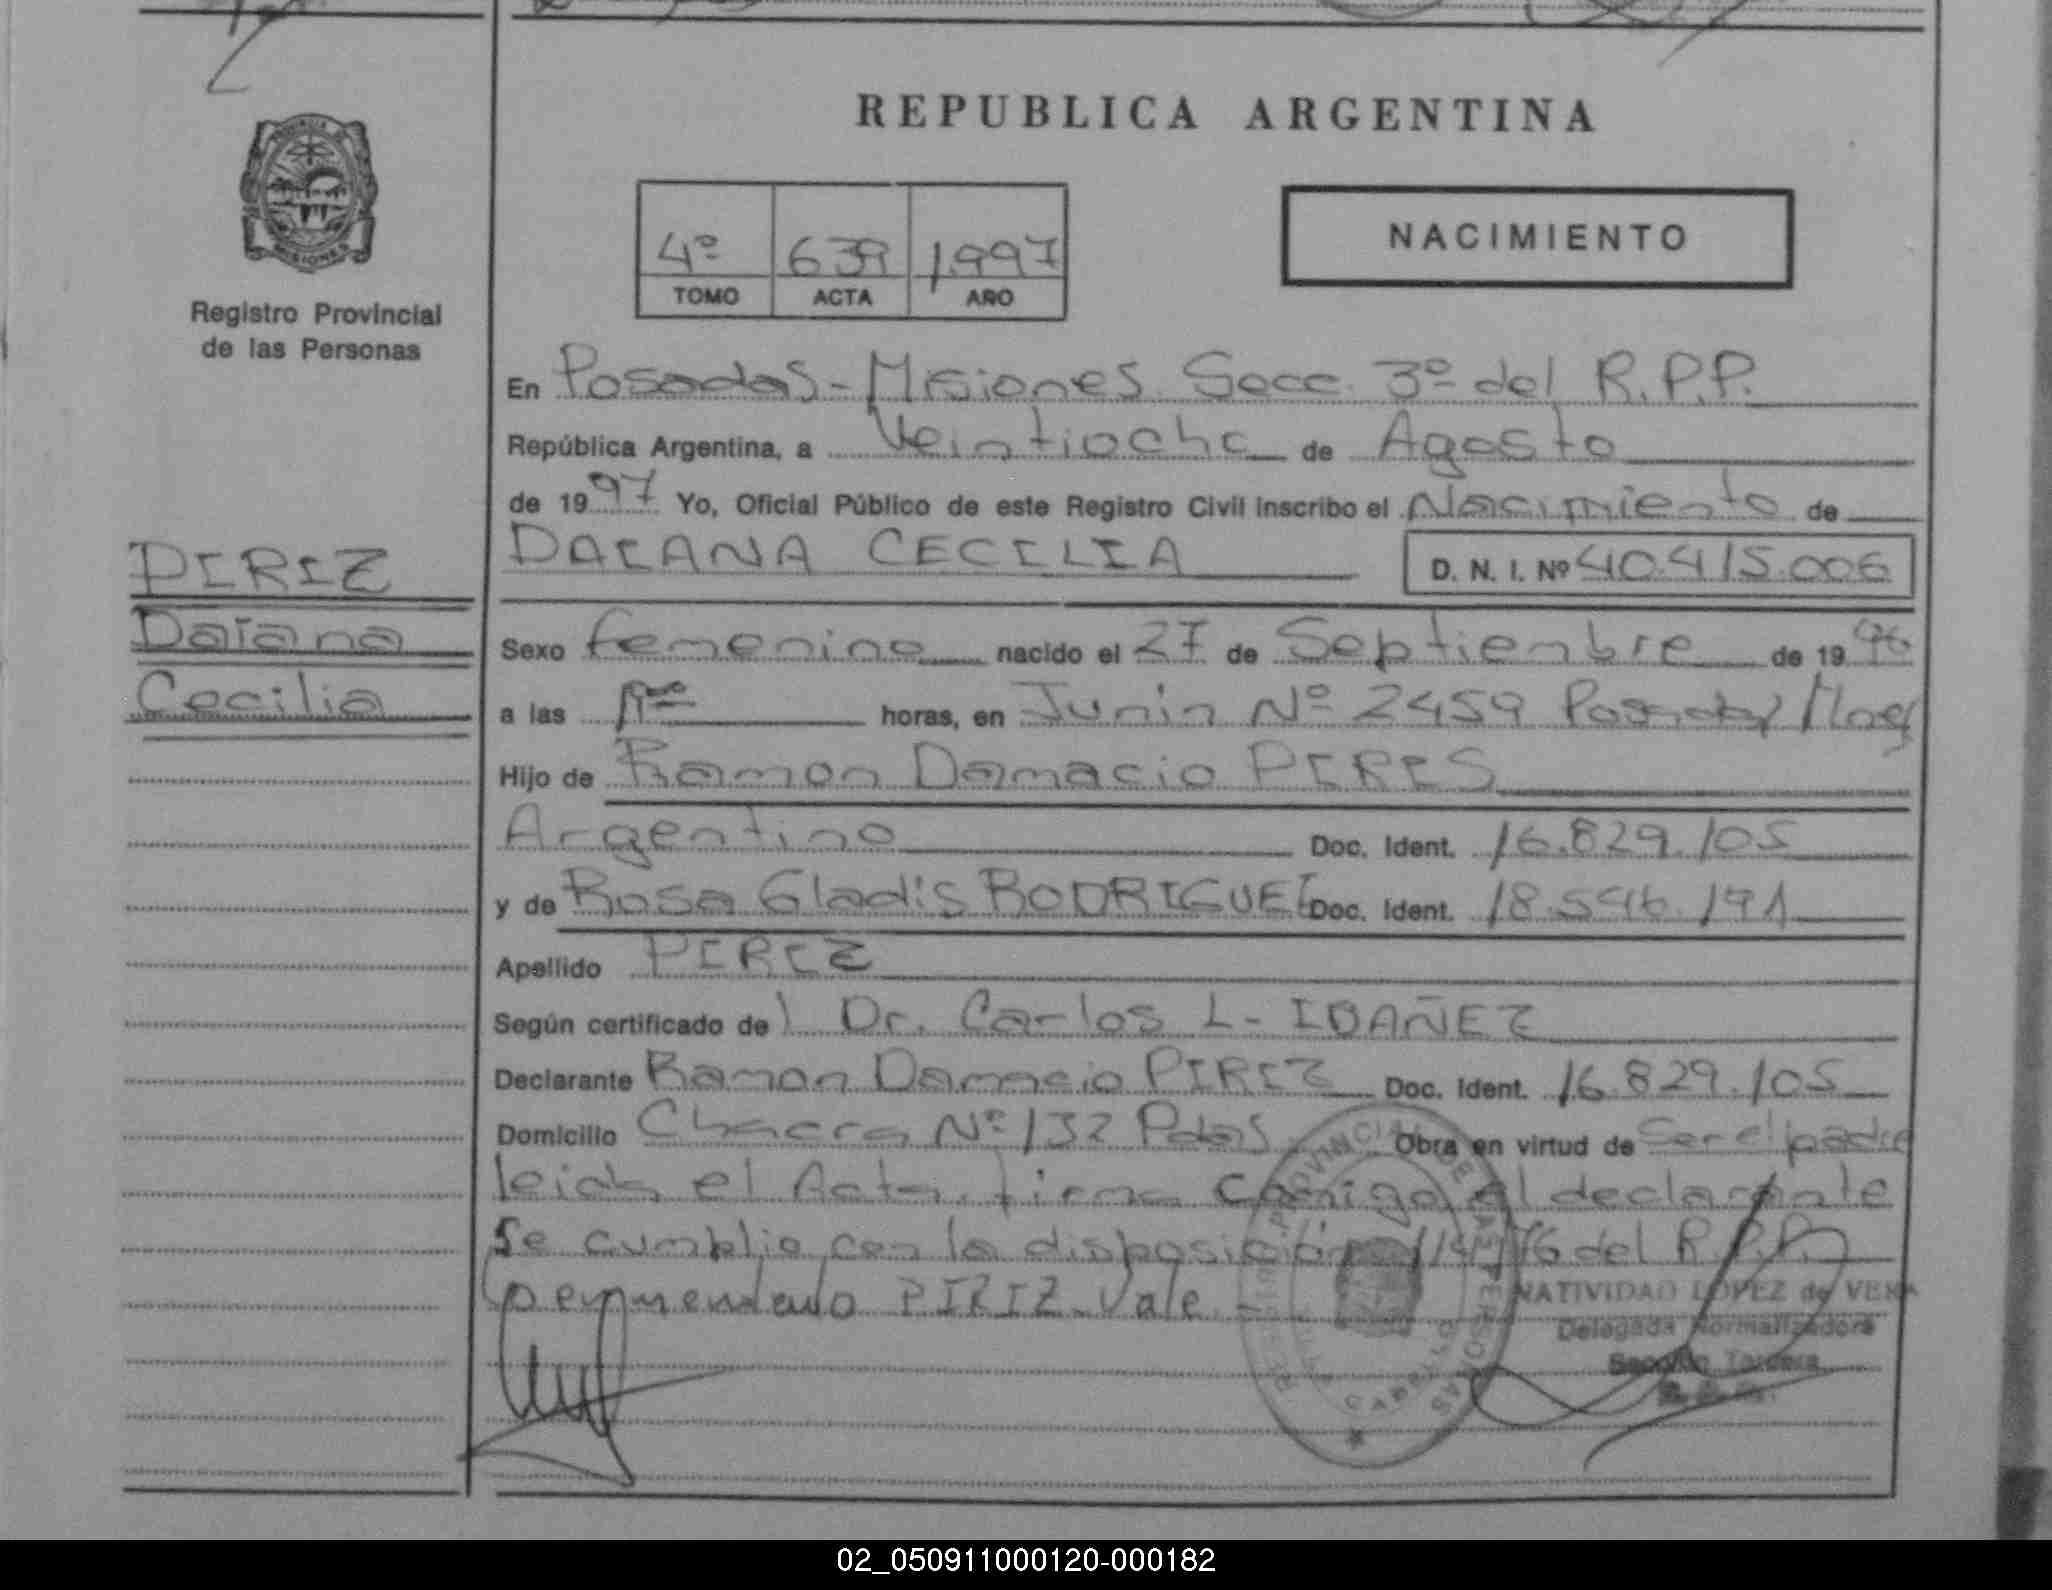 REPUBLICA ARGENTINA
PROVINCIA DE
MISIONES
Registro Provincial
de las Personas
4º 639 1.997
TOMO ACTA AÑO
NACIMIENTO
En Posadas - Misiones Secc. 3º del R.P.P.
República Argentina, a Veintiocho de Agosto
de 1997 Yo, Oficial Público de este Registro Civil inscribo el Nacimiento de
DAIANA CECILIA D. N. I. Nº 40.415.006
PIRIZ
Daiana
Cecilia
Sexo femenino nacido el 27 de Septiembre de 1996
a las horas, en Junin Nº 2459 Posadas
Hijo de Ramon Damacio PIRIS
Argentino Doc. Ident. 16.829.105
y de Rosa Gladis RODRIGUEZ Doc. Ident. 18.546.191
Apellido PIRIZ
Según certificado del Dr. Carlos L. IBAÑEZ
Declarante Ramon Damacio PIRIZ Doc. Ident. 16.829.105
Domicilio Chacra Nº 132 Pdas Obra en virtud de Ser el padre
leida el Acta, firma conmigo el declarante
Se cumplio con la disposición del R.P.P.
PIRIZ Vale -
NATIVIDAD LOPEZ de VERA
Delegada Normalizadora
Sección Tercera
02_050911000120-000182